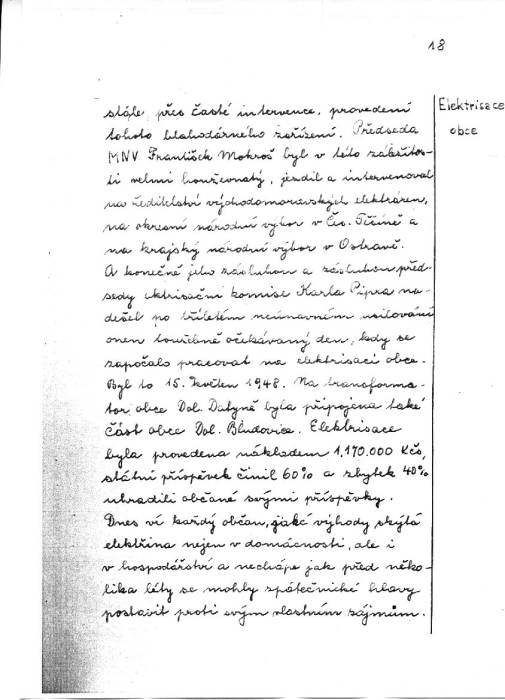 18
Elektrisace
obce
stále přes časté intervence, provedení
tohoto blahodárného zařízení. Předseda
MNV František Mokroš byl v této záležitos-
ti velmi houževnatý, jezdil a intervenoval
na ředitelství východomoravských elektráren,
na okresní národní výbor v Čes. Těšíně a
na krajský národní výbor v Ostravě.
A konečně jeho zásluhou a zásluhou před-
sedy ektrisační komise Karla Pipra na-
dešel po tříletém neúnavném usilování
onen toužebně očekávaný den, kdy se
započalo pracovat na elektrisaci obce.
Byl to 15. květen 1948. Na transforma-
tor obce Dol. Datyně byla připojena také
část obce Dol. Bludovice. Elektrisace
byla provedena nákladem 1,170.000 Kčs,
státní příspěvek činil 60% a zbytek 40%
uhradili občané svými příspěvky.
Dnes ví každý občan, jaké výhody skýtá
elektřina nejen v domácnosti, ale i
v hospodářství a nechápe jak před něko-
lika léty se mohly zpátečnické hlavy
postavit proti svým vlastním zájmům.